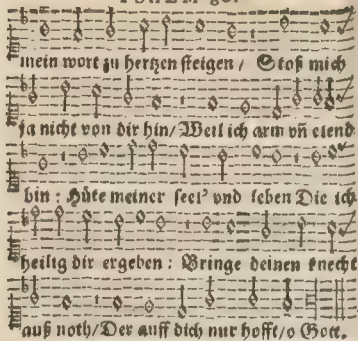 mein wort zu hertzen steigen / Stoß mich
ja nicht von dir hin / Weil ich arm vñ elend
bin : Hüte meiner seel' vnd leben Die ich
heilig dir ergeben : Bringe deinen knecht
auß noth / Der auff dich nur hofft / o Gott.